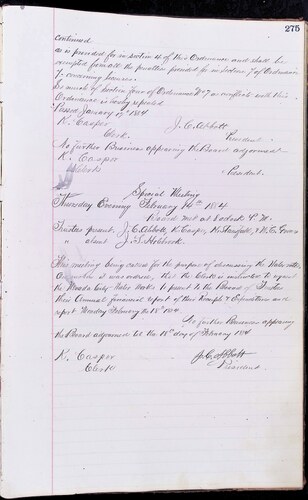 275
continued
as is provided for in section 4 of this Ordinance and shall be
exempted from all the penalties provided for in section 7 of Ordinance
7. concerning
So much of section four of Ordinance No 7 as conflicts with this
Ordinance is hereby repealed
Passed January 17th 1884
K. Casper J. C. Abbott
Clerk President
No further Business appearing the Board adjourned
K. Casper
Clerk President.
Special Meeting
Thursday Evening February 14th 1884
Board met at 8 o'clock P. M.
Trustees present, J. C. Abbott, K. Casper, & M. C. Groves
" absent J. S. Holbrook
This meeting being called for the purpose of discussing the Water rates
it was ordered, that the Clerk is instructed to request
the Nevada City Water Works to present to the Board of Trustees
their Annual financial report of their Receipts & Expenditures and
report Monday February the 18th 1884
No further Business appearing
the Board adjourned till the 18th day of February 1884
K. Casper J. C. Abbott
Clerk President